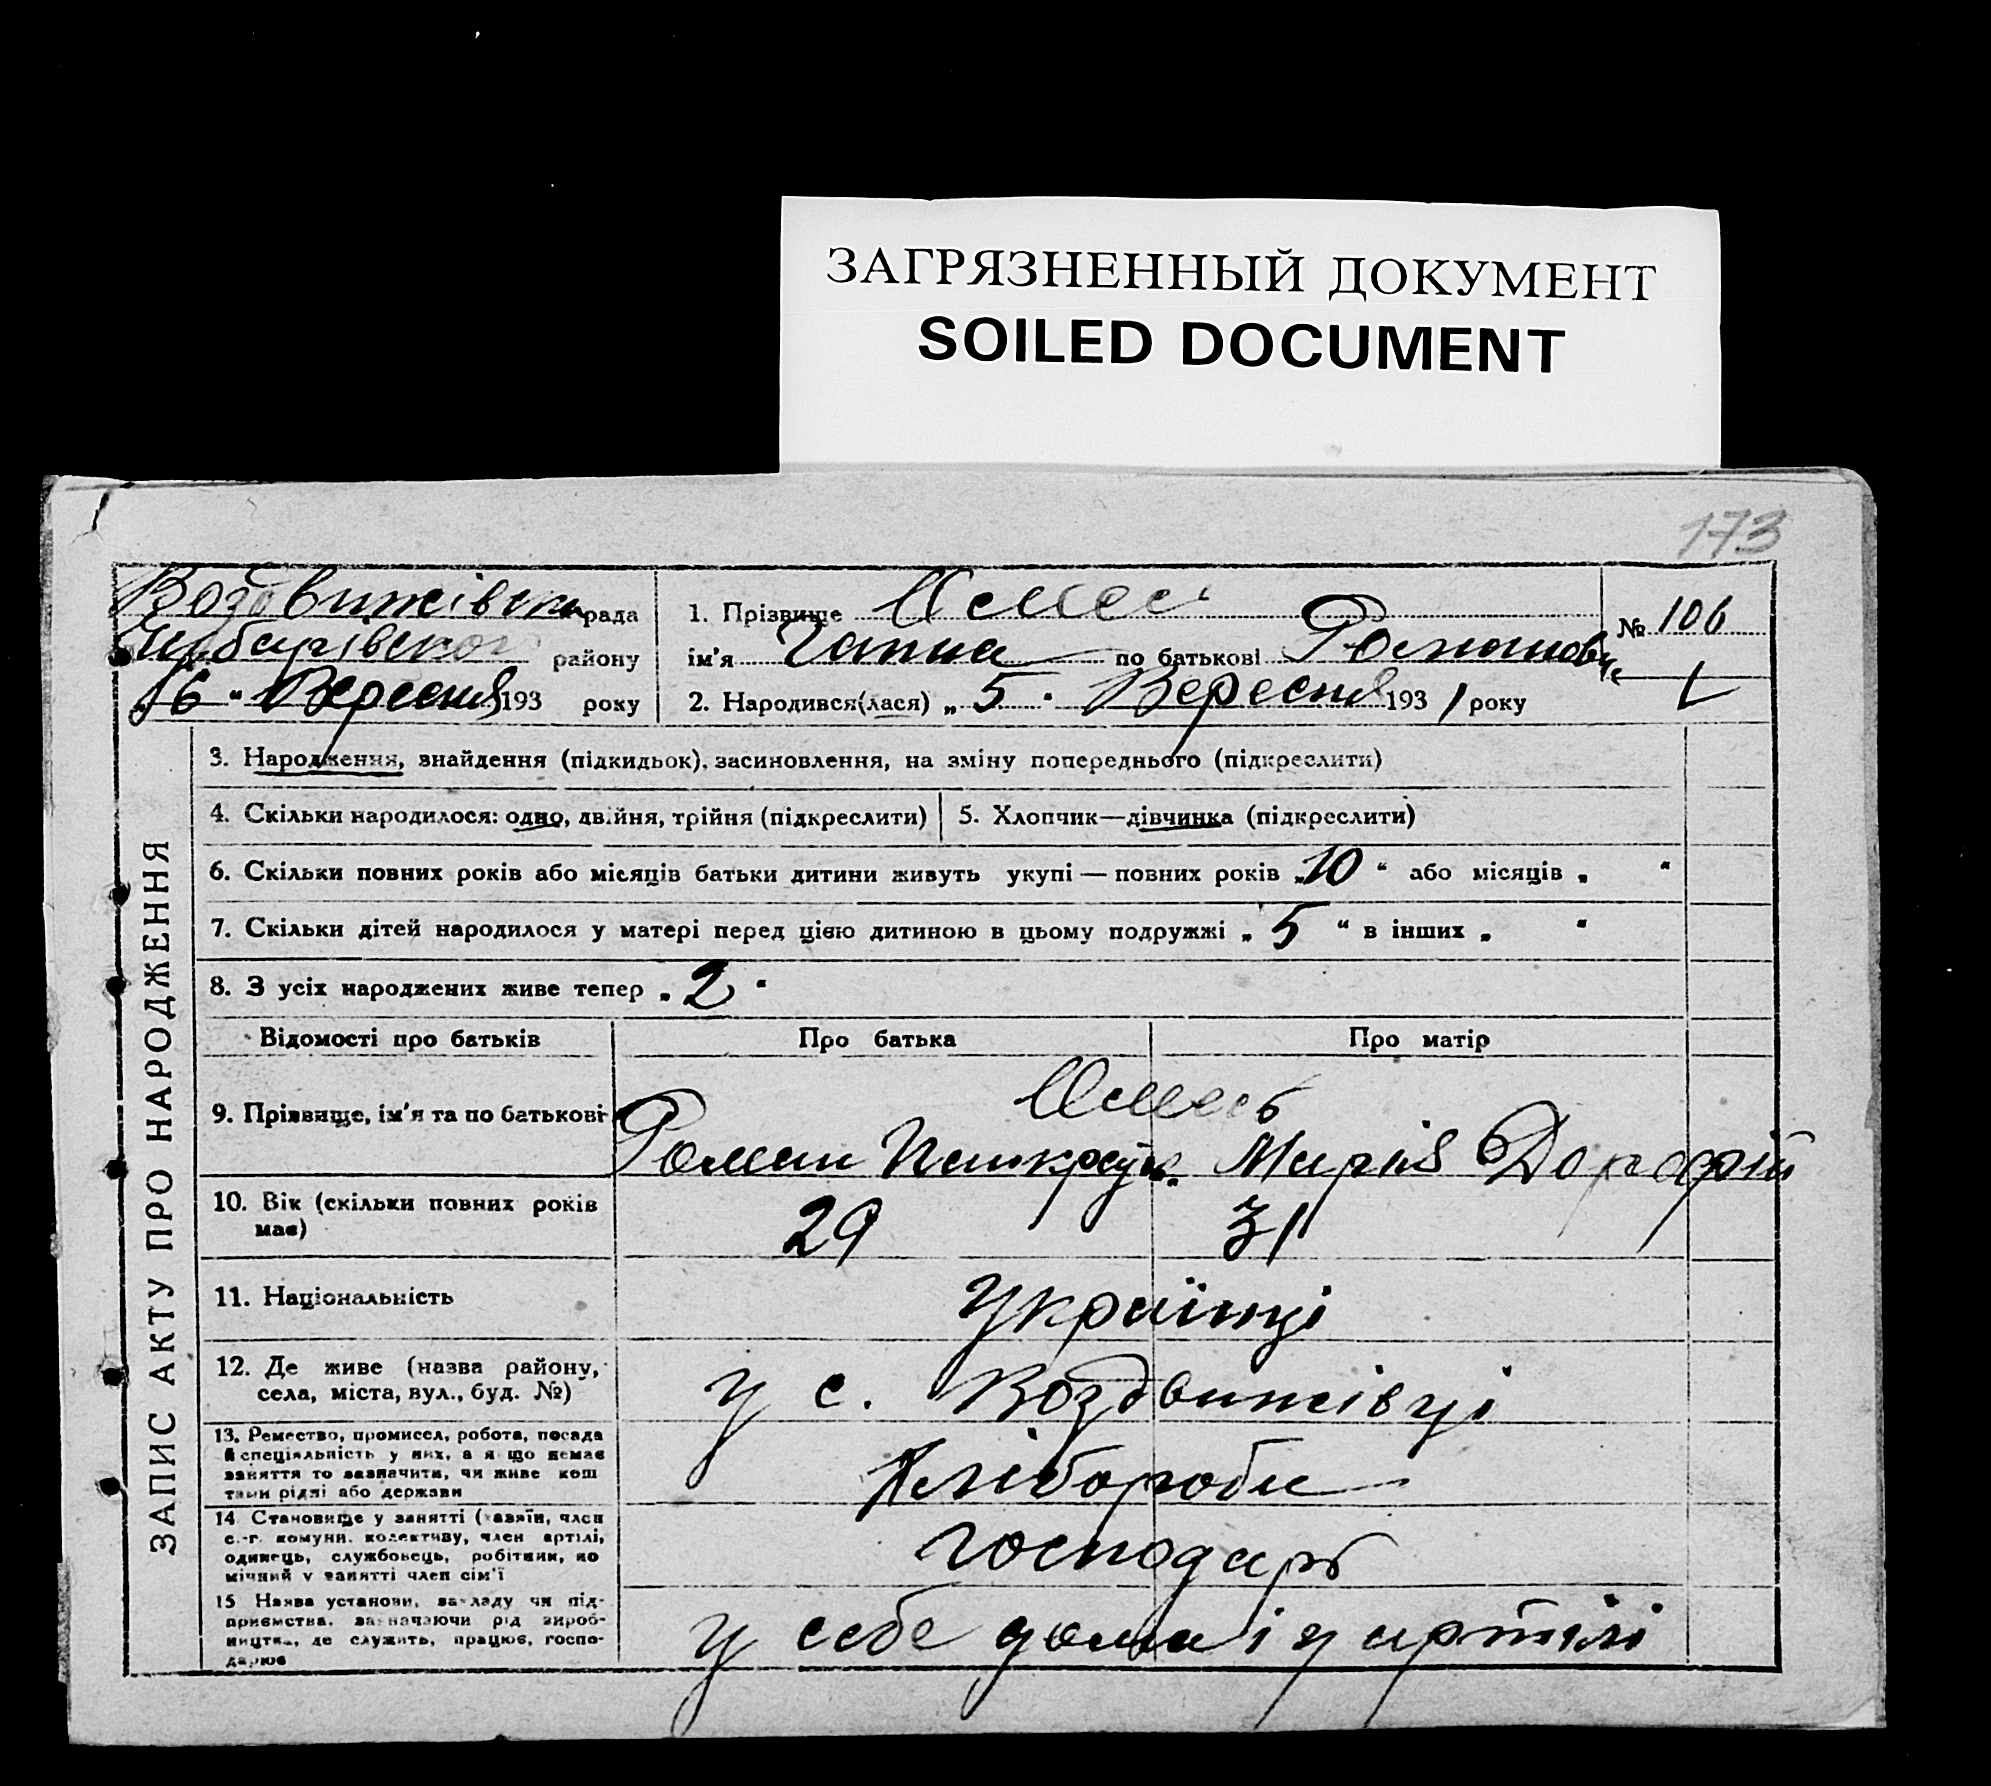 ЗАГРЯЗНЕННЫЙ ДОКУМЕНТ
SOILED DOCUMENT
173
Воздвижівська рада
району
16 " Вересня 193 року
1. Прізвище
ім'я Ганна по батькові Романовн
2. Народився(лася) „ 5 " Вересня 1931 року
№ 106
ЗАПИС АКТУ ПРО НАРОДЖЕННЯ
3. Народження, знайдення (підкидьок), засиновлення, на зміну попереднього (підкреслити)
4. Скільки народилося: одно, двійня, трійня (підкреслити)
5. Хлопчик—дівчинка (підкреслити)
6. Скільки повних років або місяців батьки дитини живуть укупі — повних років „10 “ або місяців „ “
7. Скільки дітей народилося у матері перед цією дитиною в цьому подружжі „ 5 “ в інших „ “
8. З усіх народжених живе тепер „ 2 “
Відомості про батьків
Про батька
Про матір
9. Прізвище, ім'я та по батькові
Роман Марія
10. Вік (скільки повних років має)
29 31
11. Національність
Українці
12. Де живе (назва району,
села, міста, вул., буд. №)
у с. Воздвижівці
13. Ремество, промисел, робота, посада
й спеціяльність у них, а якщо немає
заняття то зазначити, чи живе кош
тами рідні або держави
Хлібороби
14. Становище у занятті (хазяїн, член
с.-г. комуни, колективу, член артілі,
одинець, службовець, робітник, по
мічний у занятті член сім'ї
господарь
15. Назва установи, закладу чи під-
приємства, зазначаючи рід вироб-
ництва, де служить, працює, госпо-
дарює
у себе дома і у артілі